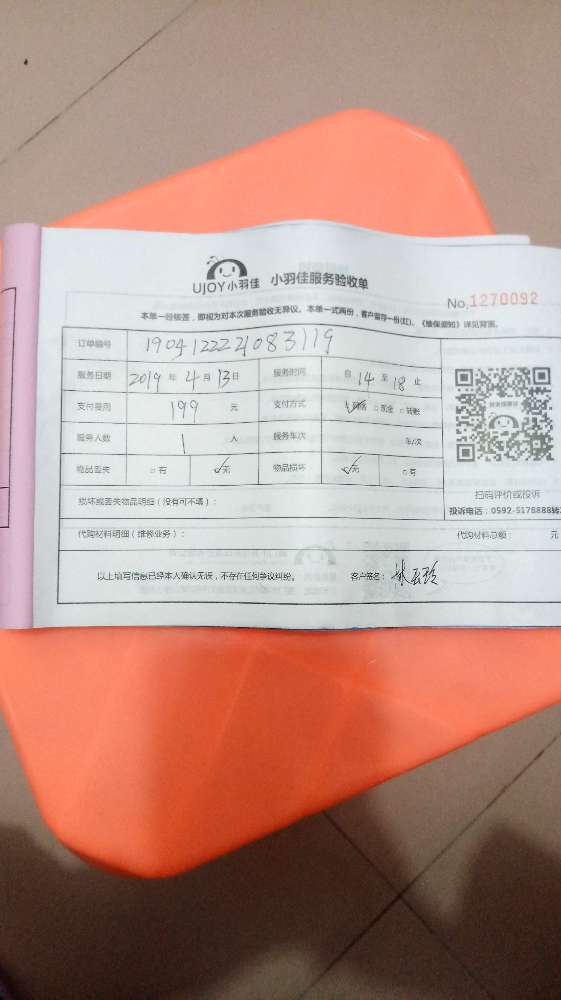 UJOY小羽佳 小羽佳服务验收单
No.1270092
本单一经签签，即视为对本次服务验收无异议。本单一式两份，客户留存一份(红)。《维保须知》详见背面。
订单编号 190412221083119
服务日期 2019 年 4 月 13 日 服务时间 自 14 至 18 止
支付费用 199 元 支付方式 ☑网络 □现金 □转账
服务人数 1 人 服务车次 车/次
物品丢失 □有 ☑无 物品损坏 ☑无 □有
扫码评价或投诉
损坏或丢失物品明细（没有可不填）：
投诉电话：0592-5178888转
代购材料明细（维修业务）： 代购材料总额： 元
以上填写信息已经本人确认无误，不存在任何争议纠纷。 客户签名：